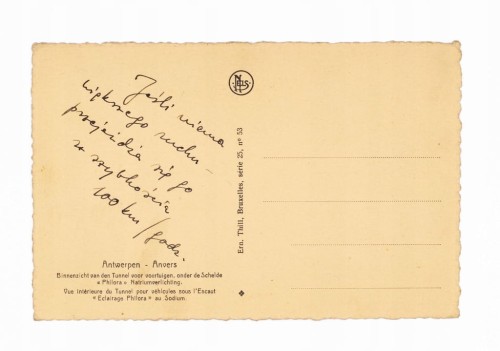 Jeśli niema
większego ruchu -
przejeżdża się go
z szybkością
100 km/godz.
Antwerpen - Anvers
Binnenzicht van den Tunnel voor voertuigen, onder de Schelde
« Philora » Natriumverlichting.
Vue intérieure du Tunnel pour véhicules sous l'Escaut
« Eclairage Philora » au Sodium.
Ern. Thill, Bruxelles, série 25, nº 53